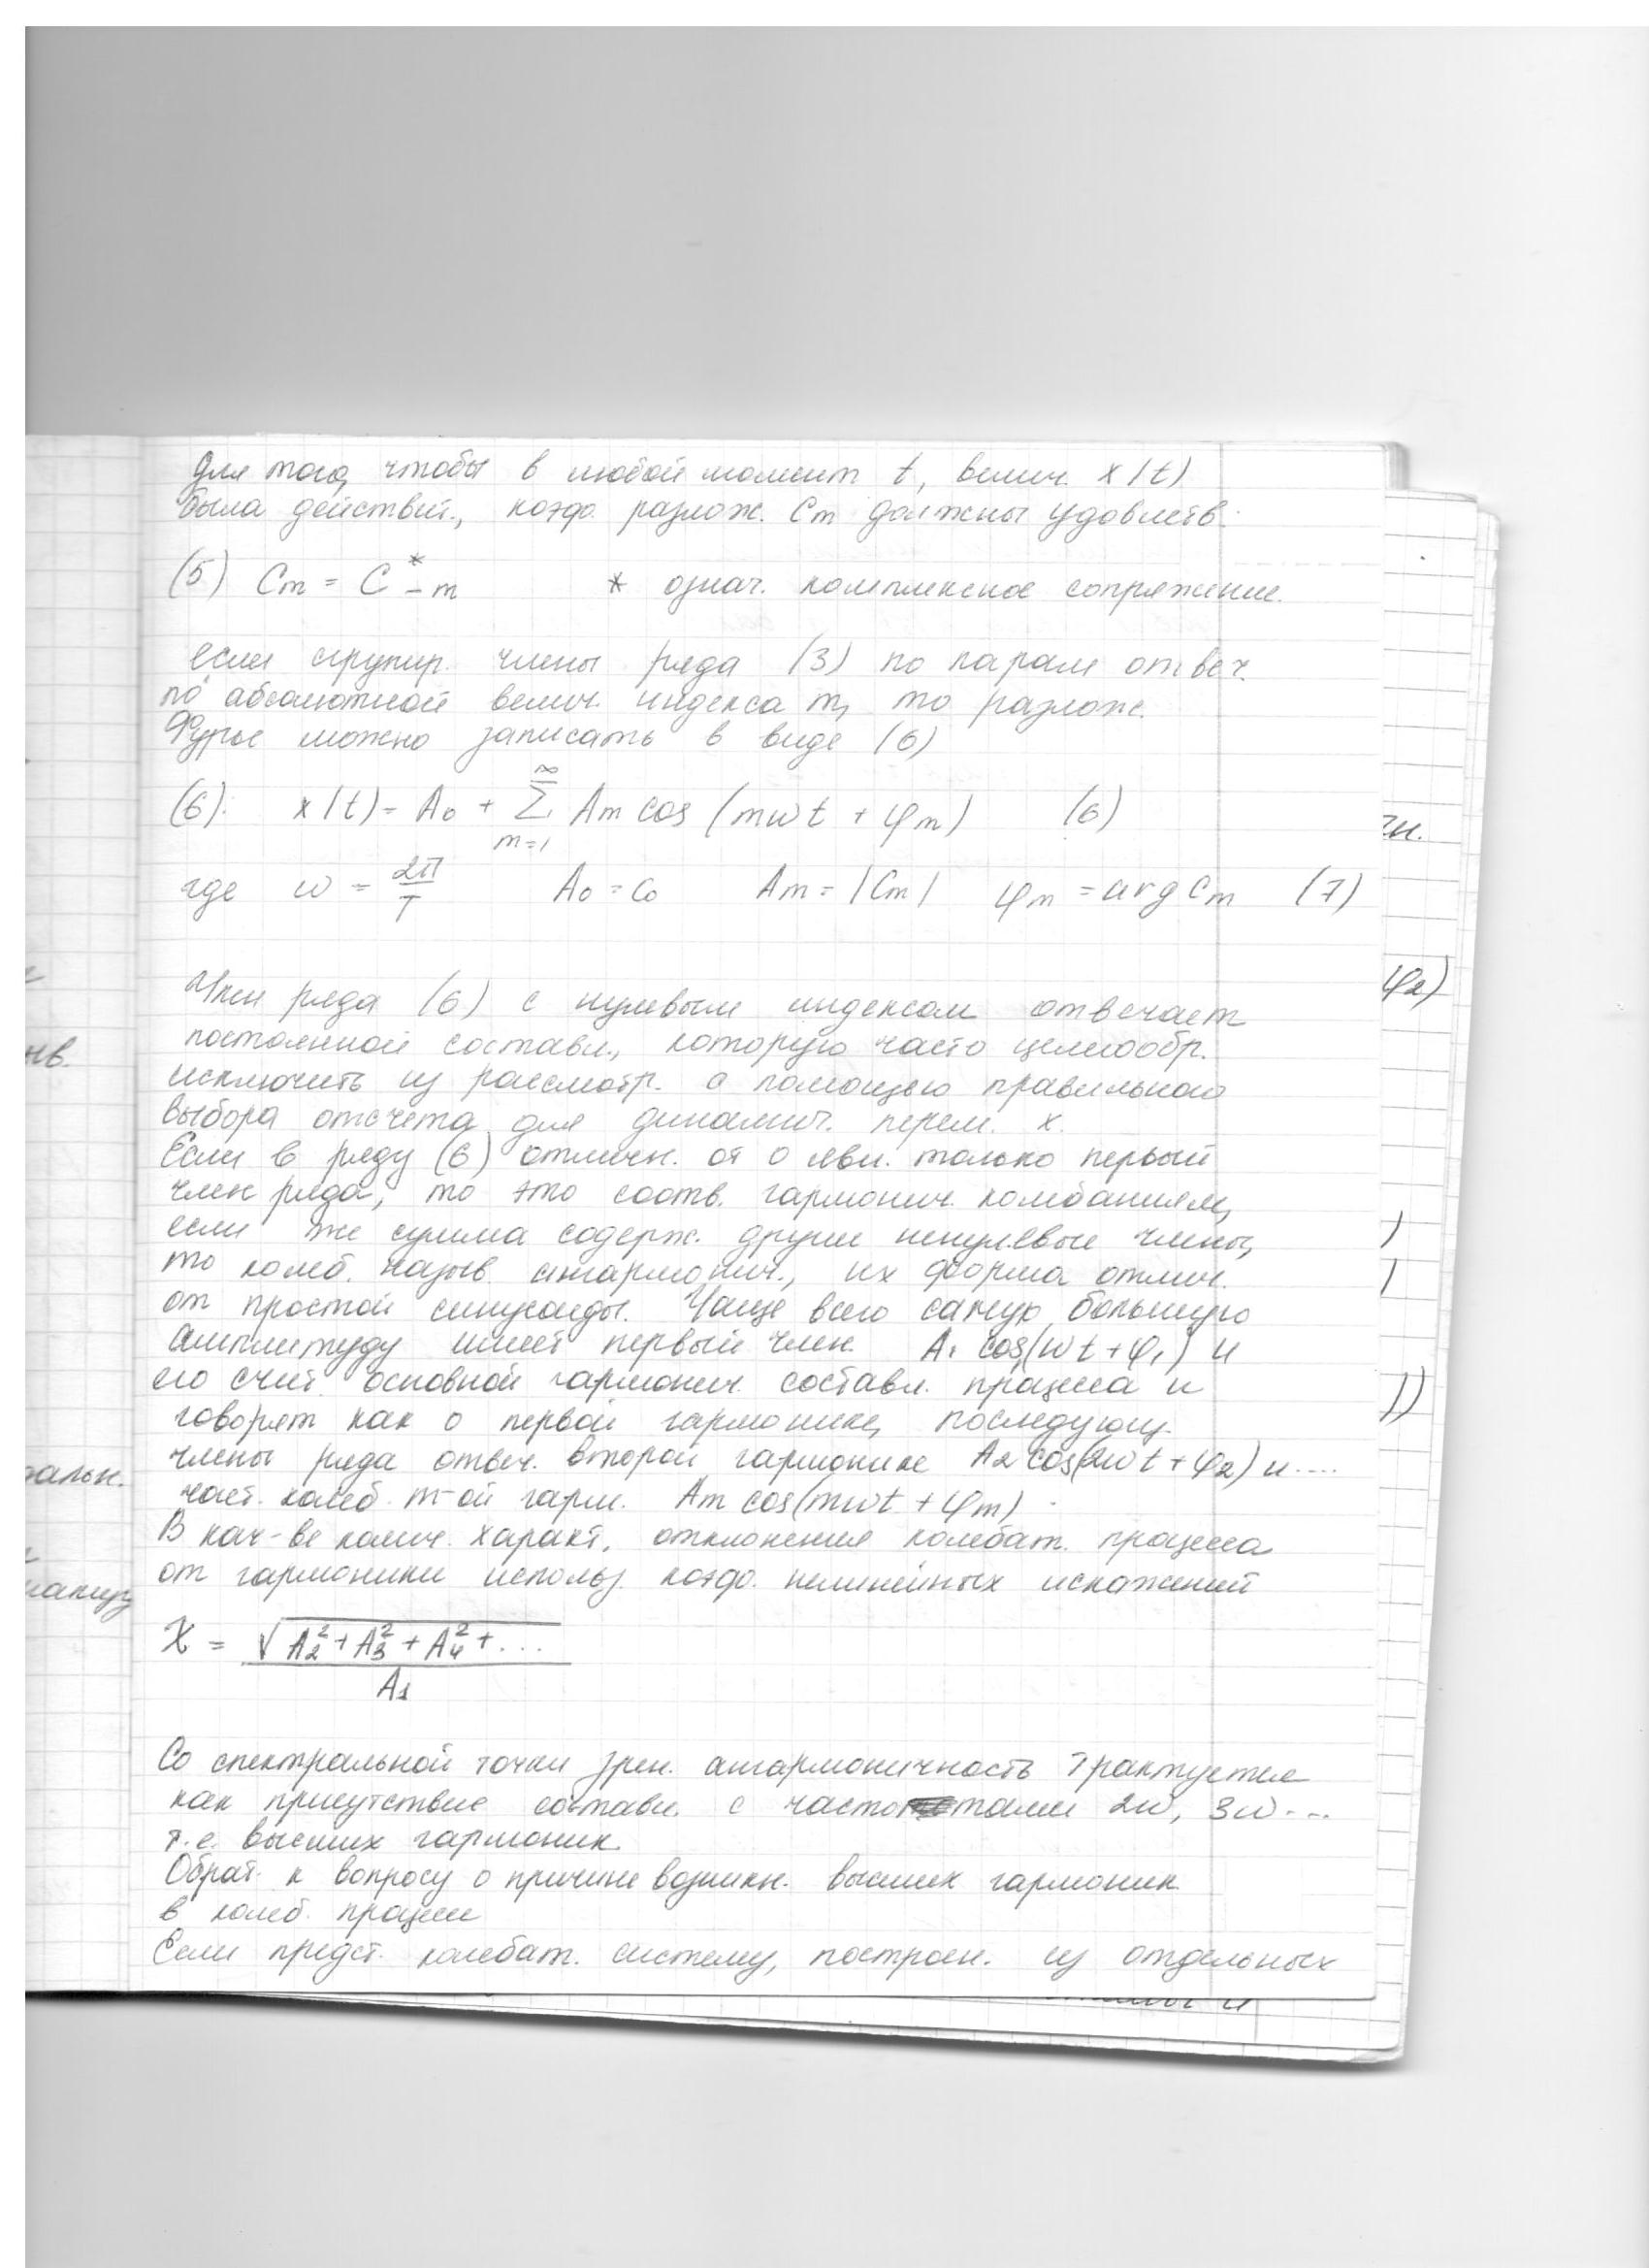 Для того, чтобы в любой момент t, велич. x(t)
была действит., коэф. разлож. Cm должны удовлетв.
(5) Cm = C*-m * означ. комплексное сопряжение.
если сгрупир. члены ряда (3) по парам отвеч.
по абсолютной велич. индекса m, то разлож.
Фурье можно записать в виде (6)
(6): x(t) = A0 + ∞Σm=1 Am cos (mωt + φm) (6)
где ω = 2π/T A0 = C0 Am = |Cm| φm = arg Cm (7)
Член ряда (6) с нулевым индексом отвечает
постоянной составл., которую часто целесообр.
исключить из рассмотр. с помощью правильного
выбора отсчета для динамич. перем. x.
Если в ряду (6) отличн. от 0 явл. только первый
член ряда, то это соотв. гармонич. колебаниям,
если же сумма содерж. другие ненулевые члены,
то колеб. назыв. ангармонич., их форма отлич.
от простой синусоиды. Чаще всего самую большую
амплитуду имеет первый член. A1 cos(ωt + φ1) и
его счит. основной гармонич. составл. процесса и
говорят как о первой гармонике, последующ.
члены ряда отвеч. второй гармонике A2 cos(2ωt + φ2) и....
част. колеб. m-ой гарм. Am cos(mωt + φm).
В кач-ве колич. характ. отклонения колебат. процесса
от гармоники использ. коэф. нелинейных искажений
X = √A2² + A3² + A4² + ... / A1
Со спектральной точки зрен. ангармоничность трактуется
как присутствие составл. с частотами 2ω, 3ω...
т.е. высших гармоник.
Обрат. к вопросу о причине возникн. высших гармоник
в колеб. процессе
Если предст. колебат. систему, построен. из отдельных
зн.
φ2)
)
)
))
нв.
альн.